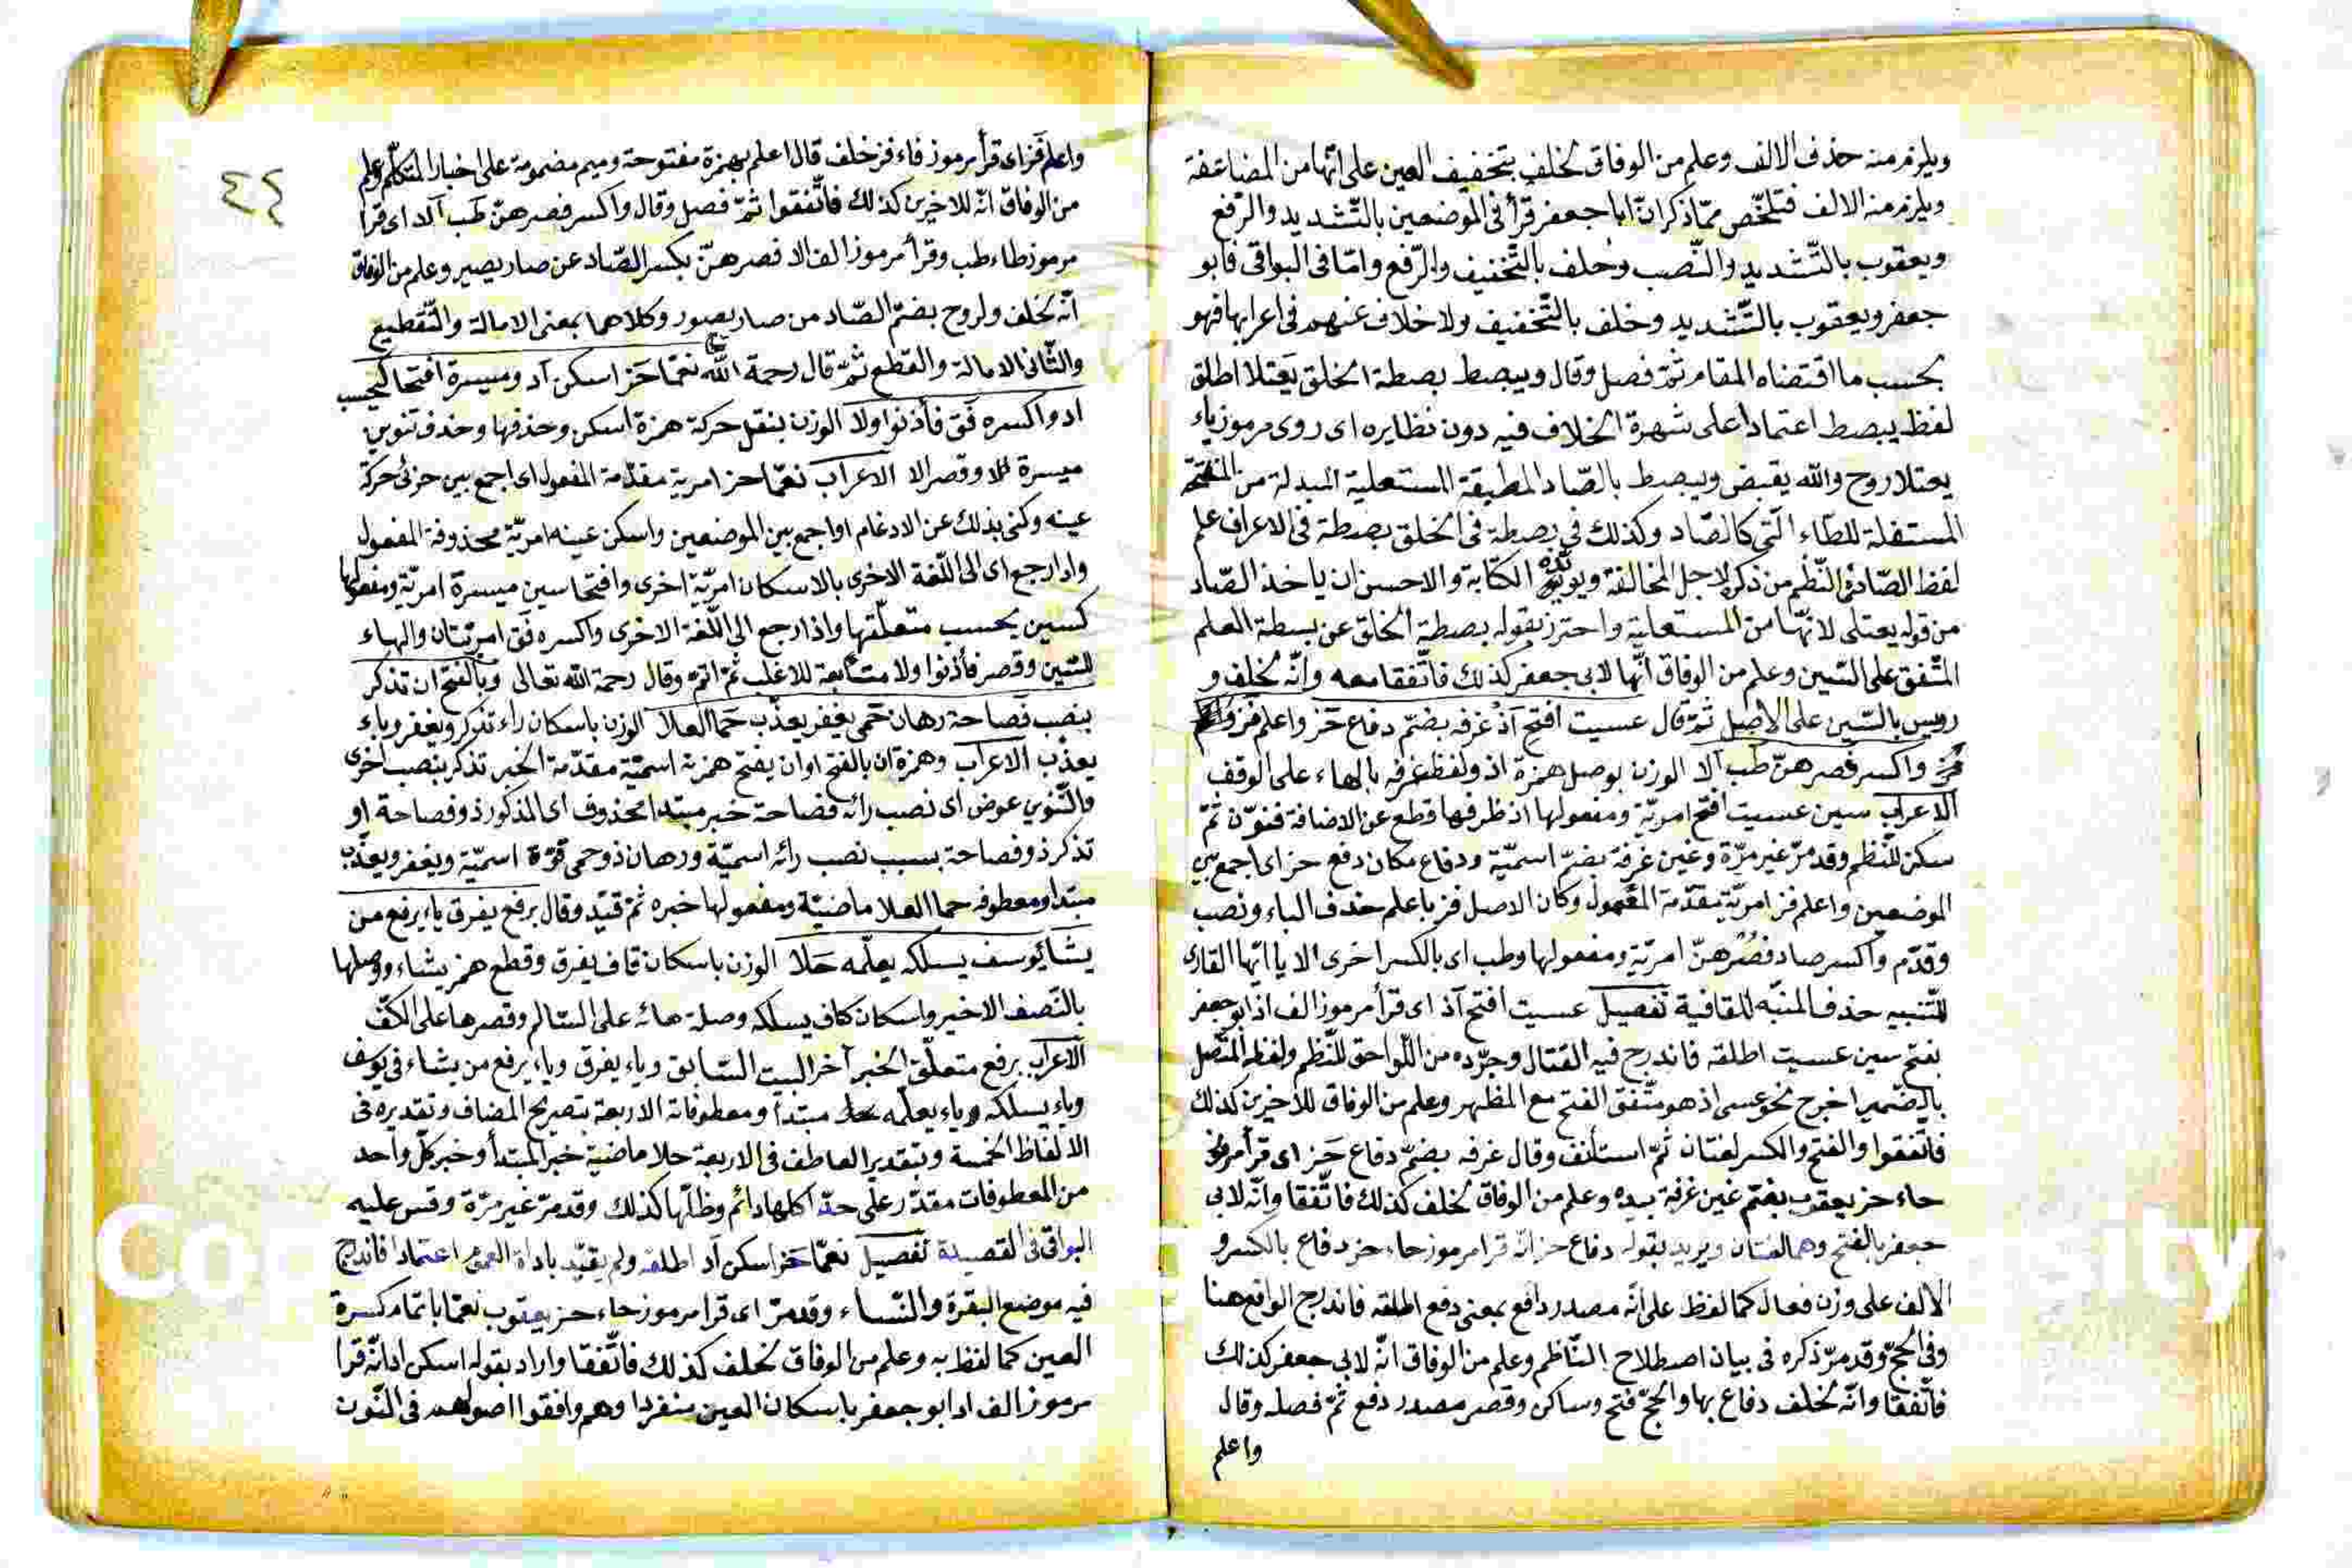 ويلزم منه حذف الالف وعلم من الوفاق لخلف بتخفيف العين على انّها من المضاعفة
ويلزم منه الالف فتلخّص ممّا ذكر انّ ابا جعفر قرأ فى الموضعين بالتّشديد والرّفع
ويعقوب بالتّشديد والنّصب وخلف بالتّخفيف والرّفع وامّا فى البواقى فابو
جعفر ويعقوب بالتّشديد وخلف بالتّخفيف ولا خلاف عنهم فى اعرابها فهو
بحسب ما اقتضاه المقام ثمّ فصل وقال ويبصط بصطة الخلق يعتلا اطلق
لفظ يبصط اعتمادا على شهرة الخلاف فيه دون نظايره اى روى مرموز ياء
يعتلا روح والله يقبض ويبصط بالصّاد المطبقة المستعلية المبدلة من المنفتحة
المستفلة للطّاء الّتى كالصّاد وكذلك فى بصطة فى الخلق بصطة فى الاعراف علم
لفظ الصّاد فى النّظم من ذكر لاجل المخالفة ويؤيّده الكتابة والاحسن ان ياخذ الصّاد
من قوله يعتلى لانّها من المستعلية واحترز بقوله بصطة الخلق عن بسطة العلم
المتّفق على السّين وعلم من الوفاق انّها لابى جعفر كذلك فاتّفقا معه وانّه لخلف و
رويس بالسّين على الاصل ثمّ قال عسيت افتح اذ غرفه بضمّ دفاع حز واعلم فز
واكسر فصرهنّ طب الا الوزن بوصل همزة اذ ولفظ غرفه بالهاء على الوقف
الاعراب سين عسيت افتح امريّة ومفعولها اذ ظرفها قطع عن الاضافة فنوّن ثمّ
سكن للنّظم وقد مرّ غير مرّة وغين غرفة بضمّ اسميّة ودفاع مكان دفع حز اى اجمع بين
الموضعين واعلم فز امريّة مقدّمة المفعول وكان الاصل فز باعلم حذف الباء ونصب
وقدّم واكسر صاد فصرهنّ امريّة ومفعولها وطب اى بالكسر اخرى الا يا ايّها القارى
للتّنبيه حذف المنبّه للقافية تفصيل عسيت افتح اذ اى قرأ مرموز الف اذ ابو جعفر
بفتح سين عسيت اطلقه فاندرج فيه القتال وجرّده من اللّواحق للنّظم ولفظه المتّصل
بالضّمير اخرج نحو عسى اذ هو متّفق الفتح مع المظهر وعلم من الوفاق للاخرين كذلك
فاتّفقوا والفتح والكسر لغتان ثمّ استأنف وقال غرفه بضمّ دفاع حز اى قرأ مرموز
حاء حز يعقوب بضم غين غرفة بيده وعلم من الوفاق لخلف كذلك فاتّفقا وانّه لابى
جعفر بالفتح وهما لغتان ويريد بقوله دفاع حز انّه قرا مرموز حاء حز دفاع بالكسر و
الالف على وزن فعال كما لفظ على انّه مصدر دافع بمعنى دفع اطلقه فاندرج الواقع هنا
وفى الحجّ وقد مرّ ذكره فى بيان اصطلاح النّاظم وعلم من الوفاق انّه لابى جعفر كذلك
فاتّفقا وانّه لخلف دفاع بها والحجّ فتح وساكن وقصر مصدر دفع ثمّ فصله وقال
واعلم
٤٤
واعلم فز اى قرأ مرموز فاء فز خلف قال اعلم بهمزة مفتوحة وميم مضمومة على اخبار المتكلّم وعلم
من الوفاق انّه للاخرين كذلك فاتّفقوا ثمّ فصل وقال واكسر فصرهنّ طب الا اى قرا
مرموز طاء طب وقرأ مرموز الف الا فصرهنّ بكسر الصّاد عن صار يصير وعلم من الوفاق
انّه لخلف ولروح بضمّ الصّاد من صار يصور وكلاهما بمعنى الامالة والتّقطيع
والثّانى الامالة والقطع ثمّ قال رحمة الله نعمّا حز اسكن اد وميسرة افتحا كيحسب
اد واكسره فق فأذنوا ولا الوزن بنقل حركة همزة اسكن وحذفها وحذف تنوين
ميسرة وقصر الا الاعراب نعمّا حز امرية مقدّمة المفعول اى اجمع بين حزئ حركة
عينه وكنى بذلك عن الادغام او اجمع بين الموضعين واسكن عينه امريّة محذوفة المفعول
واد ارجع اى الى اللّغة الاخرى بالاسكان امريّة اخرى وافتحا سين ميسرة امريّة ومفعولها
كسين يحسب متعلّقها واذ ارجع الى اللّغة الاخرى واكسره فق امريّتان والهاء
للسّين وقصر فأذنوا ولا متابعة للاغلب ثمّ اتمّ وقال رحمة الله تعالى وبالفتح ان تذكر
بنصب فصاحة رهان حمى يغفر يعذّب حما العلا الوزن باسكان راء تذكر ويغفر وباء
يعذّب الاعراب وهمزة ان بالفتح او ان بفتح همزته اسميّة مقدّمة الخبر تذكر بنصب اخرى
والتّنوين عوض اى نصب رائه فصاحة خبر مبتدا محذوف اى المذكور ذو فصاحة او
تذكر ذو فصاحة بسبب نصب رائه اسميّة ورهان ذو حمى قوّة اسميّة ويغفر ويعذّب
مبتدا ومعطوفه حما العلا ماضيّة ومفعولها خبره ثمّ قيّد وقال برفع يفرق ياء يرفع من
يشا يوسف يسلكه يعلّمه حلا الوزن باسكان قاف يفرق وقطع همز يشاء ووصلها
بالنّصف الاخير واسكان كاف يسلكه وصلة هائه على السّالم وقصرها على الكفّ
الاعراب برفع متعلّق الخبر آخر البيت السّابق وياء يفرق وياء يرفع من يشاء فى يوسف
وياء يسلكه وياء يعلّمه مبتدأ ومعطوفاته الاربعة بتصريح المضاف وتقديره فى
الالفاظ الخمسة وبتقدير العاطف فى الاربعة حلا ماضية خبر المبتدأ وخبر كلّ واحد
من المعطوفات مقدّر على حدّ اكلها دائم وظلّها كذلك وقد مرّ غير مرّة وقس عليه
البواقى فى القصيدة تفصيل نعمّا حز اسكن اد اطلقه ولم يقيّد باداة العموم اعتمادا فاندرج
فيه موضع البقرة والنّساء وقد مرّ اى قرا مرموز حاء حز يعقوب نعمّا باتمام كسرة
العين كما لفظ به وعلم من الوفاق لخلف كذلك فاتّفقا واراد بقوله اسكن اد انّه قرا
مرموز الف اد ابو جعفر باسكان العين منفردا وهم وافقوا اصولهم فى النّون